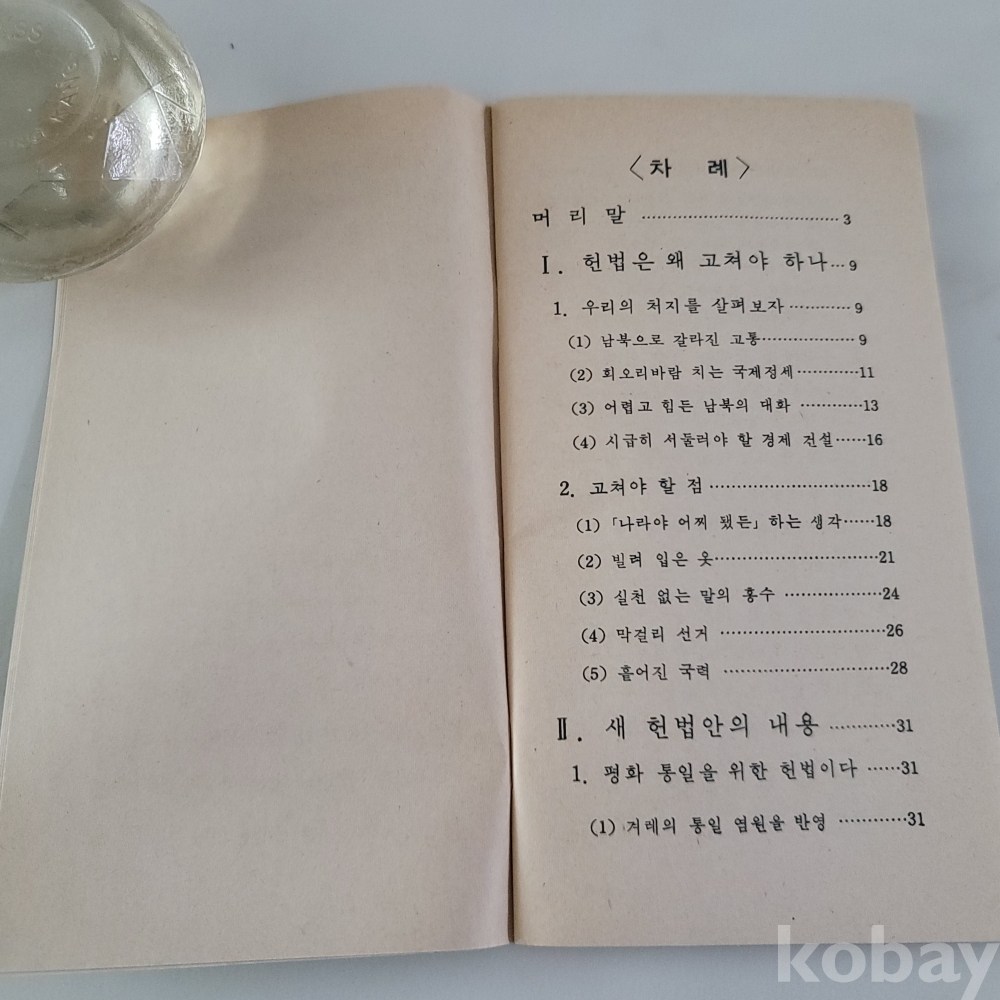 〈차 례〉
머 리 말 ……………………………… 3
Ⅰ. 헌법은 왜 고쳐야 하나 … 9
1. 우리의 처지를 살펴보자 ………… 9
(1) 남북으로 갈라진 고통 ……………… 9
(2) 회오리바람 치는 국제정세 ………… 11
(3) 어렵고 힘든 남북의 대화 ………… 13
(4) 시급히 서둘러야 할 경제 건설 …… 16
2. 고쳐야 할 점 ………………………… 18
(1) 「나라야 어찌 됐든」 하는 생각 …… 18
(2) 빌려 입은 옷 ………………………… 21
(3) 실천 없는 말의 홍수 ……………… 24
(4) 막걸리 선거 ………………………… 26
(5) 흩어진 국력 ………………………… 28
Ⅱ. 새 헌법안의 내용 ………… 31
1. 평화 통일을 위한 헌법이다 …… 31
(1) 겨레의 통일 염원을 반영 ………… 31
kobay